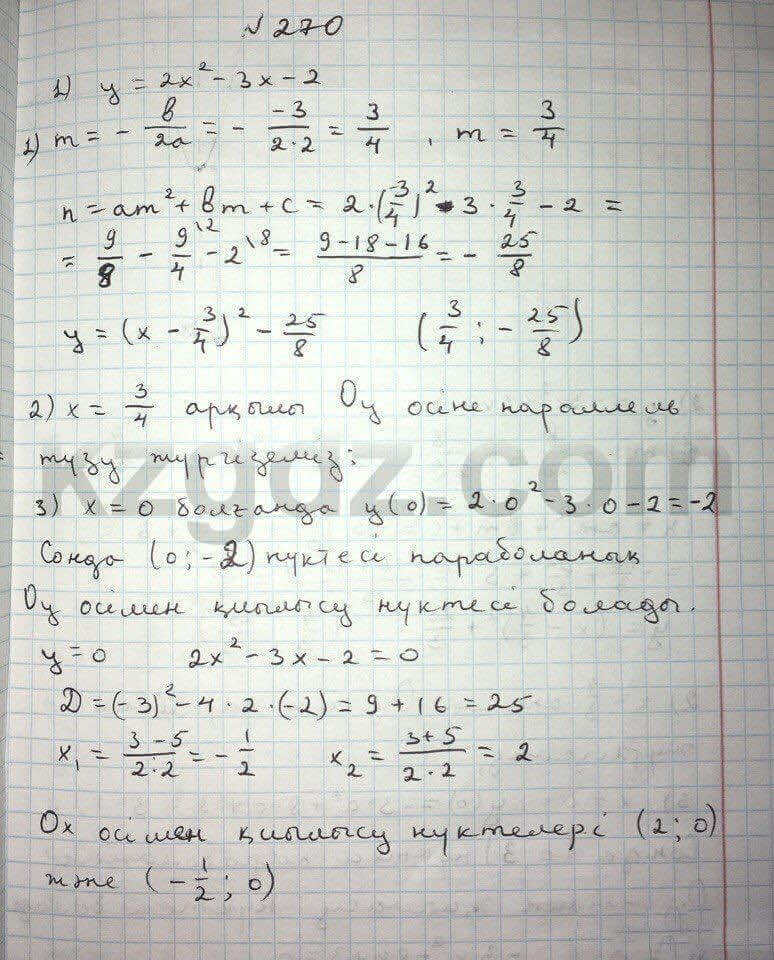 №270
1) y = 2x² - 3x - 2
1) m = - b/2a = - -3/2·2 = 3/4 , m = 3/4
n = am² + bm + c = 2·(3/4)² - 3·3/4 - 2 =
= 9/8 - 9/4\2 - 2\8 = 9-18-16/8 = - 25/8
y = (x - 3/4)² - 25/8 (3/4 ; - 25/8)
2) x = 3/4 арқылы Oy осіне параллель
түзу жүргіземіз;
kzgdz.com
3) x = 0 болғанда y(0) = 2·0² - 3·0 - 2 = -2
Сонда (0; -2) нүктесі параболаның
Oy осімен қиылысу нүктесі болады.
y = 0 2x² - 3x - 2 = 0
D = (-3)² - 4·2·(-2) = 9 + 16 = 25
x₁ = 3-5/2·2 = - 1/2 x₂ = 3+5/2·2 = 2
Ox осімен қиылысу нүктелері (2; 0)
және (- 1/2 ; 0)